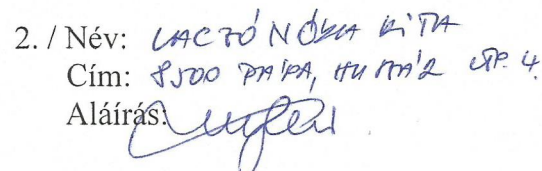 2. / Név: LACZÓ NÓRA RITA
Cím: 8500 PÁPA, HUSZÁR LTP. 4.
Aláírás: